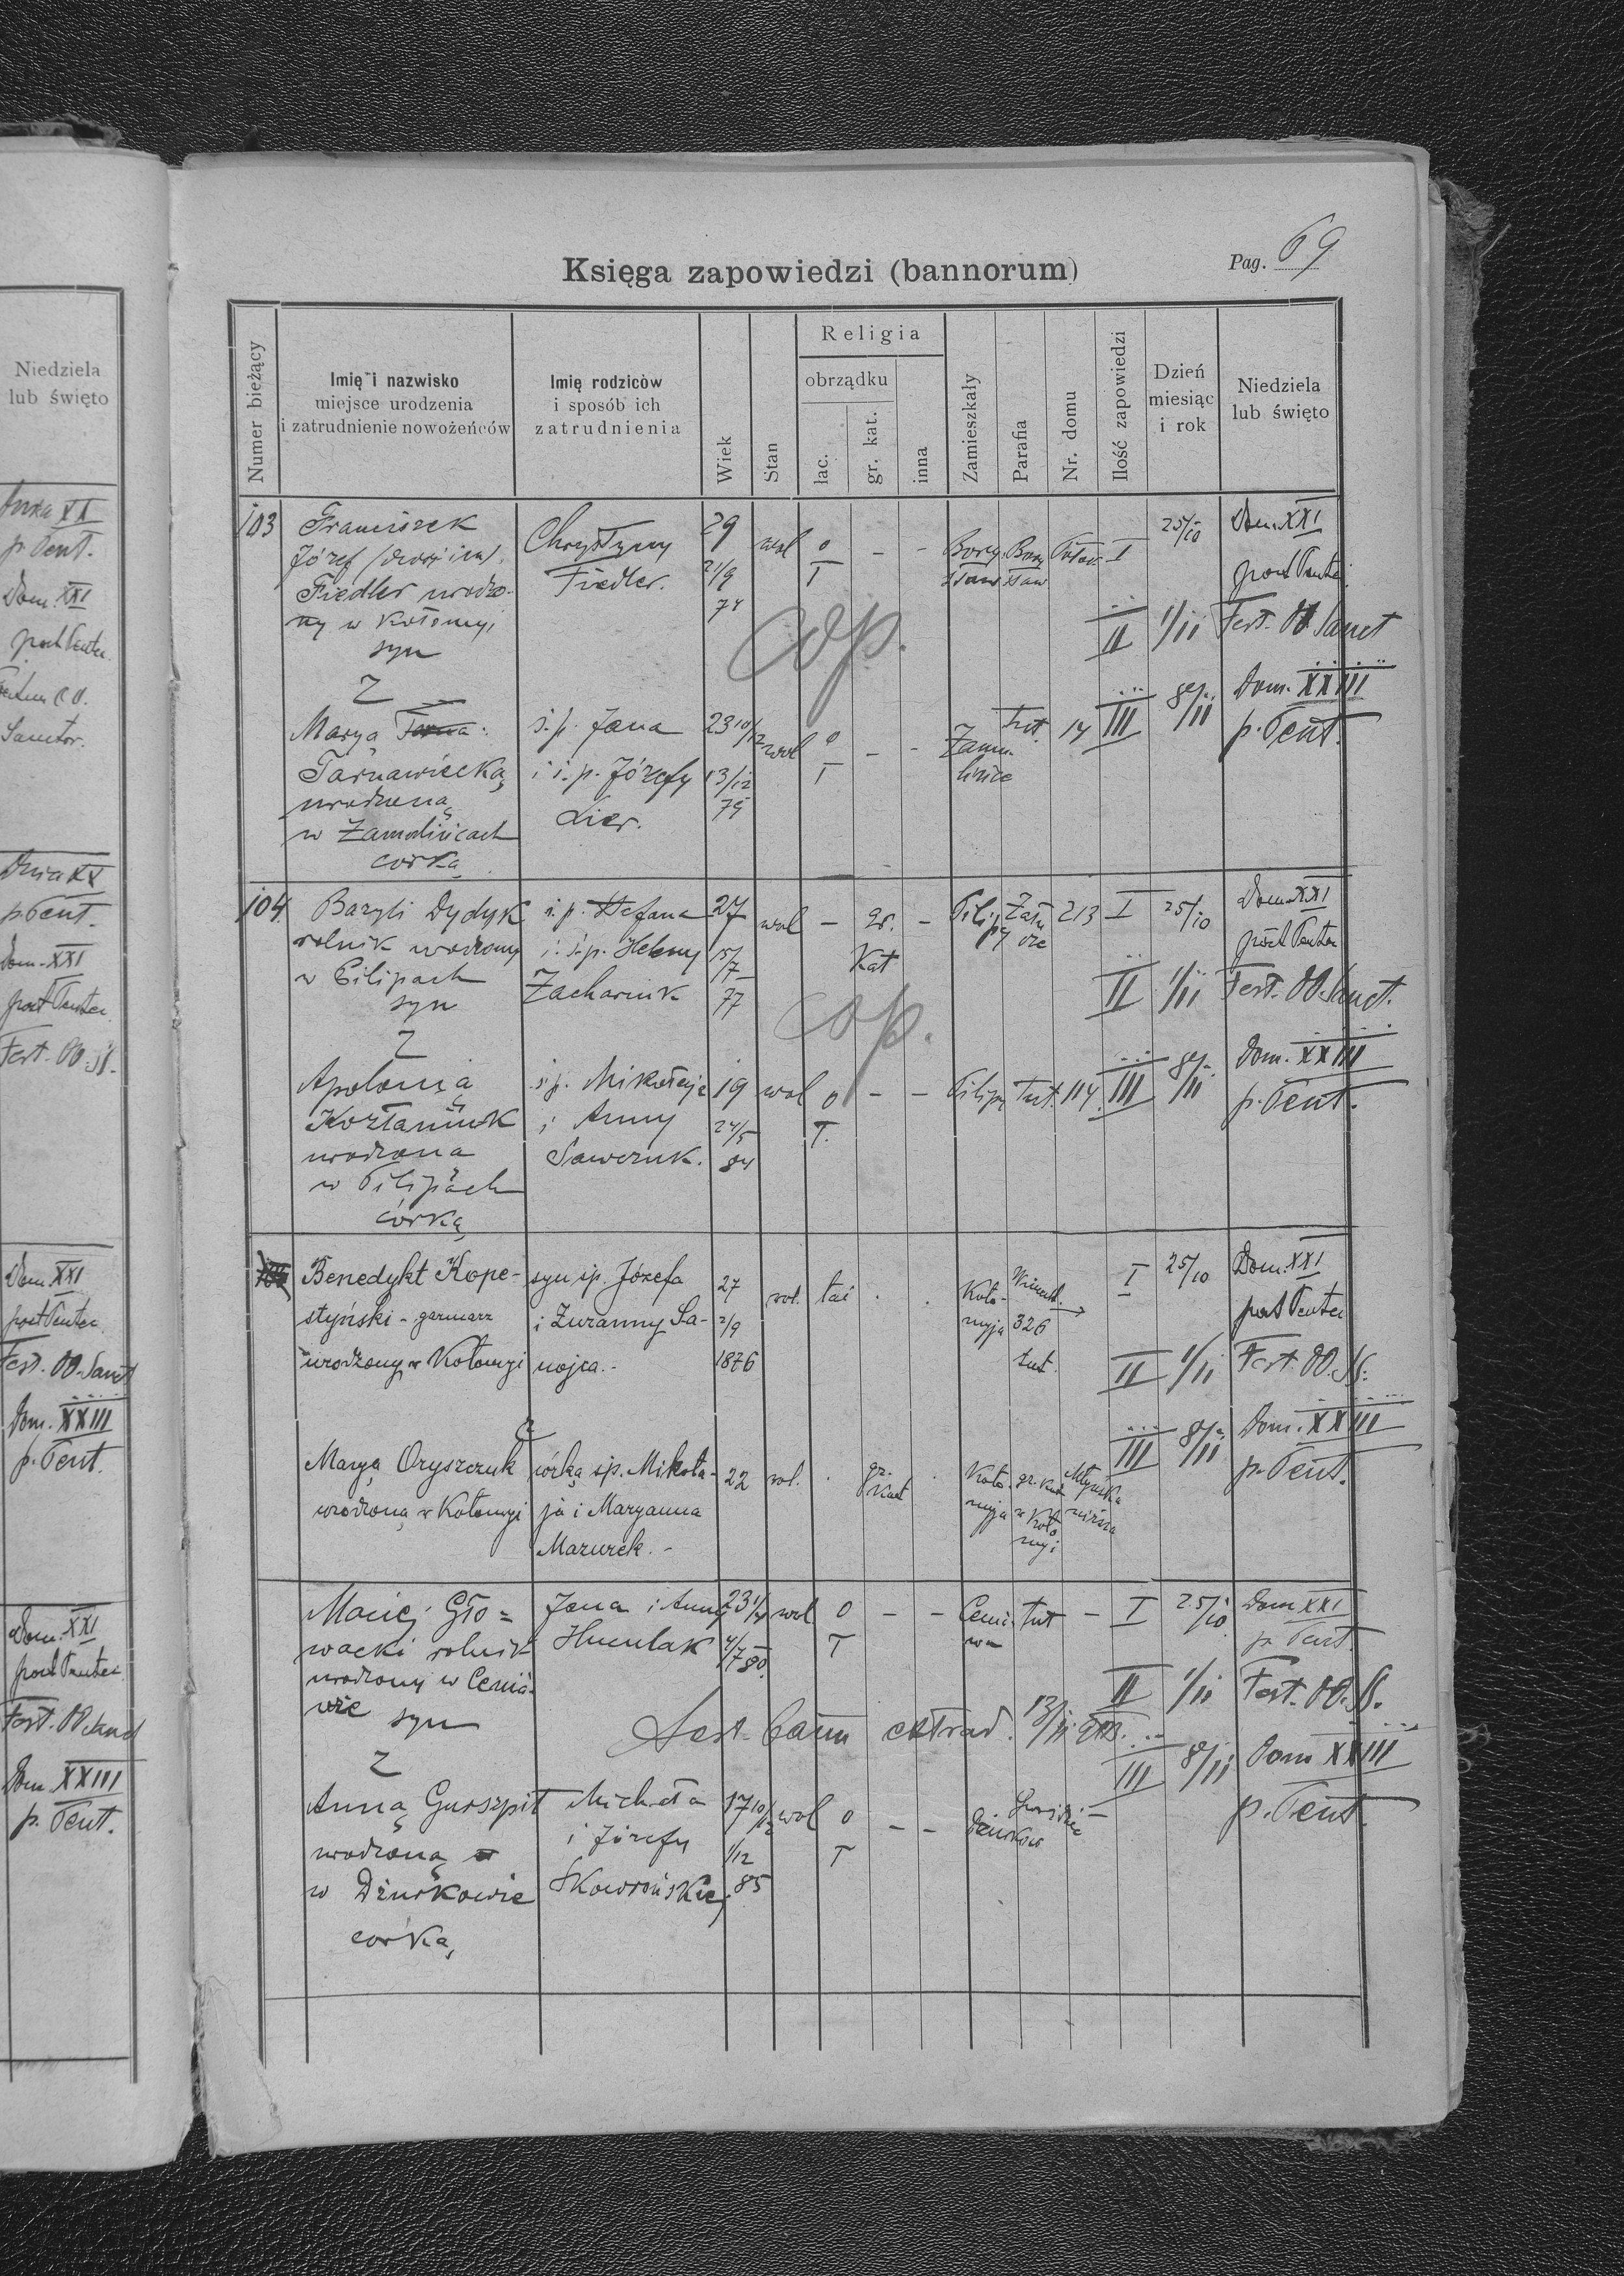 Niedziela
lub święto
XX
p. Pent.
Dom. XXI
post Pentec.
Sanctor.
XX
p. Pent.
Dom. XXI
post Pentec.
Fest. OO. SS.
Dom XXI
post Pentec
Fest. OO. Sanct
Dom. XXIII
p. Pent.
Dom. XXI
post Pentec.
Fest. OO Sanct
Dom. XXIII
p. Pent.
Księga zapowiedzi (bannorum)
Pag. 69
Numer bieżący
Imię i nazwisko
miejsce urodzenia
i zatrudnienie nowożeńców
Imię rodziców
i sposób ich
zatrudnienia
Wiek
Stan
Religia
obrządku
łac.
gr. kat.
inna
Zamieszkały
Parafia
Nr. domu
Ilość zapowiedzi
Dzień
miesiąc
i rok
Niedziela
lub święto
103
Franciszek
Józef
Fiedler urodzo-
ny w Kołomyi
syn
Z
Marya
Tarnawiecką
urodzoną
w Zamulińcach
córką
Chrystyny
Fiedler.
29
21/9
74
wol
o
T
- -
Bory
sław
Bory
sław
I
25/10
Dom. XXI
post Pentec.
cop.
II
1/11
Fest. OO Sanct
III
8/11
Dom. XXIII
p. Pent.
ś.p. Jana
i ś.p. Józefy
Lier.
23 10/12
13/12
79
wol
o
T
- -
Zamu-
lińce
Tut.
14
104
Bazyli Dydyk
rolnik urodzony
w Pilipach
syn
Z
Apolonią
Kozłaniuk
urodzona
w Pilipach
córką
ś.p. Stefana
i ś.p. Heleny
Zacharuk
27
15/7
77
wol
-
gr.
Kat
-
Pilipy
213
I
25/10
Dom. XXI
post Pentec
cop.
II
1/11
Fest. OO. Sanct.
III
8/11
Dom. XXIII
p. Pent.
ś.p. Mikołaja
i Anny
Sawczuk.
19
24/5
84
wol
o
T.
- -
Pilipy
Tut.
114
Benedykt Kope-
styński - garncarz
urodzony w Kołomyi
syn śp. Józefa
i Zuzanny Sa-
nojca. -
27
2/9
1876
wol.
łać
Koło-
myja
326
tut.
I
25/10
Dom. XXI
post Pentec
II
1/11
Fest. OO. SS.
III
8/11
Dom. XXIII
p. Pent.
z
Maryą Oryszczuk
urodzoną w Kołomyi
córką śp. Mikoła-
ja i Maryanna
Mazurek. -
22
wol.
gr.
kat
Koło-
myja
gr. kat
w Koło
myi
Młyńska
niższa
Maciej Gło=
wacki rolnik
urodzony w Cenia-
wie
syn
Z
Anną Gurszpit
urodzoną
w Dżurkowie
córką
Jana i Anny
Huculak
23 1/4
4/7
80.
wol
o
T
- -
Cenia-
wa
Tut
-
I
25/10
Dom XXI
p. Pent.
II
1/11
Fest. OO. SS.
bann extrad. 13/11
III
8/11
Dom XXIII
p. Pent.
Michała
i Józefy
Skowrońskiej
17 10/12
1/12
85
wol
o
T
- -
Dżurków